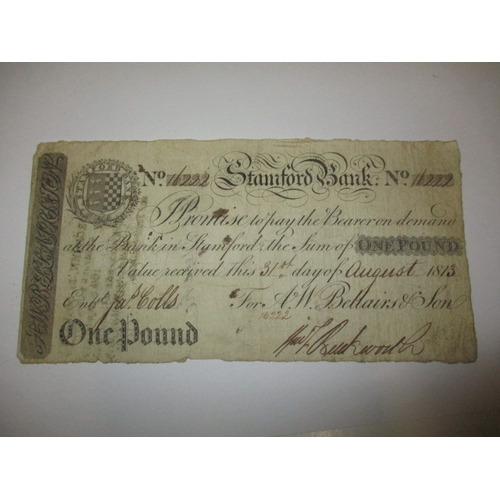 STAMFORD BANK
No. 16222 Stamford Bank. No. 16222
I Promise to pay the Bearer on demand
at the Bank in Stamford the Sum of ONE POUND
Value received this 31st day of August 1813
Entd. Jas. Colls For A. W. Bellairs & Son
16222
One Pound